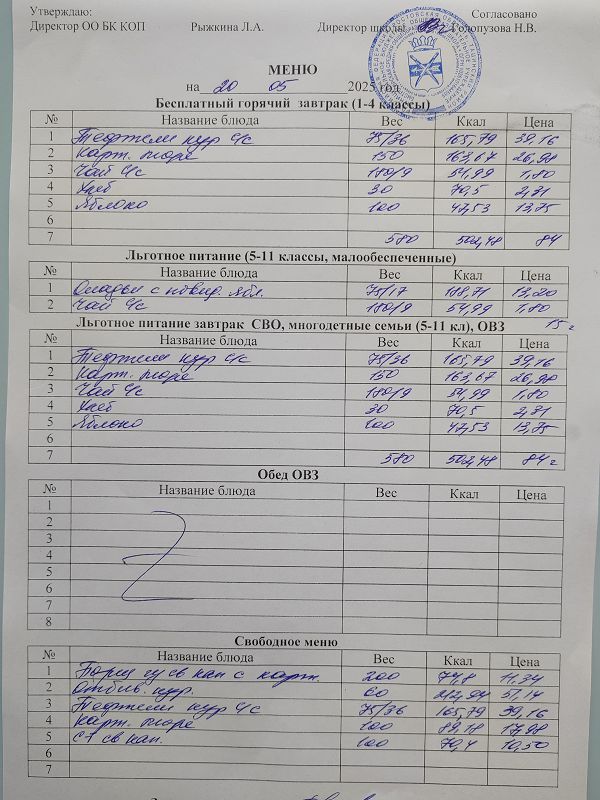 Утверждаю: Согласовано
Директор ОО БК КОП Рыжкина Л.А. Директор школы Голопузова Н.В.
МЕНЮ
на 20 05 2025 год
Бесплатный горячий завтрак (1-4 классы)
№ Название блюда Вес Ккал Цена
1 Тефтели кур ч/с 75/36 165,79 39,16
2 Карт. пюре 150 163,67 26,98
3 Чай ч/с 180/9 54,99 1,80
4 Хлеб 30 70,5 2,31
5 Яблоко 100 47,53 13,75
6
7 580 502,48 84
Льготное питание (5-11 классы, малообеспеченные)
№ Название блюда Вес Ккал Цена
1 Оладьи с повид. ябл. 75/17 188,71 13,20
2 Чай ч/с 180/9 54,99 1,80
Льготное питание завтрак СВО, многодетные семьи (5-11 кл), ОВЗ 15 г
№ Название блюда Вес Ккал Цена
1 Тефтели кур ч/с 75/36 165,79 39,16
2 Карт. пюре 150 163,67 26,98
3 Чай ч/с 180/9 54,99 1,80
4 Хлеб 30 70,5 2,31
5 Яблоко 100 47,53 13,75
6
7 580 502,48 84 г
Обед ОВЗ
№ Название блюда Вес Ккал Цена
1
2
3
4
5
6
7
8
Свободное меню
№ Название блюда Вес Ккал Цена
1 Борщ из св кап с карт. 200 74,8 11,34
2 Отбив. кур. 60 212,94 51,14
3 Тефтели кур ч/с 75/36 165,79 39,16
4 Карт. пюре 100 89,18 17,98
5 С-т св кап. 100 70,4 10,50
6
7